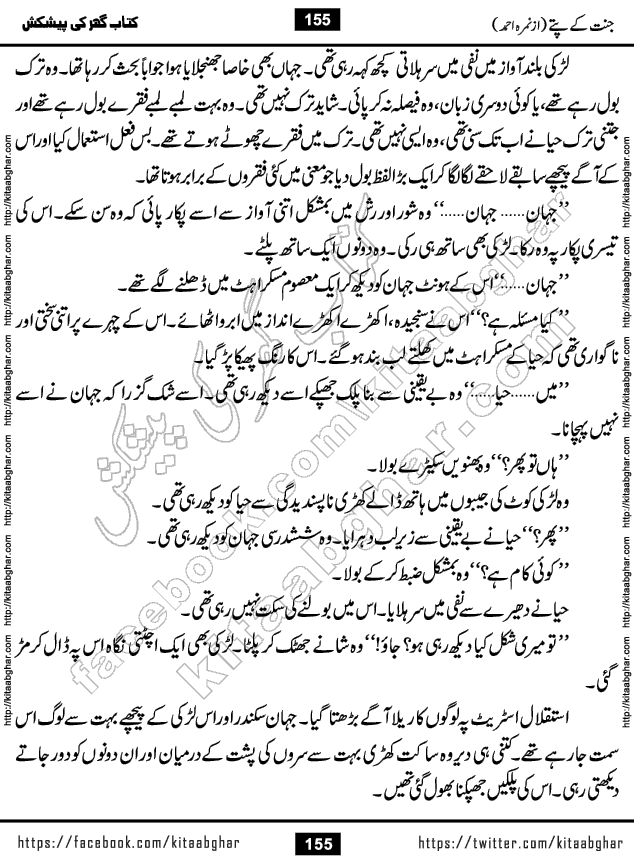 کتاب گھر کی پیشکش
155
جنت کے پتے (از نمرہ احمد)
لڑکی بلند آواز میں نفی میں سر ہلاتی کچھ کہہ رہی تھی۔ جہان بھی خاصا جھنجلایا ہوا جواباً بحث کر رہا تھا۔ وہ ترک
بول رہے تھے، یا کوئی دوسری زبان، وہ فیصلہ نہ کر پائی۔ شاید ترک نہیں تھی۔ وہ بہت لمبے لمبے فقرے بول رہے تھے اور
جتنی ترک حیا نے اب تک سنی تھی، وہ ایسی نہیں تھی۔ ترک میں فقرے چھوٹے ہوتے تھے۔ بس فعل استعمال کیا اور اس
کے آگے پیچھے سابقے لاحقے لگا لگا کر ایک بڑا لفظ بول دیا جو معنی میں کئی فقروں کے برابر ہوتا تھا۔
’’جہان...... جہان......‘‘ وہ شور اور رش میں بمشکل اتنی آواز سے اسے پکار پائی کہ وہ سن سکے۔ اس کی
تیسری پکار پہ وہ رکا۔ لڑکی بھی ساتھ ہی رکی۔ وہ دونوں ایک ساتھ پلٹے۔
’’جہان......‘‘ اس کے ہونٹ جہان کو دیکھ کر ایک معصوم مسکراہٹ میں ڈھلنے لگے تھے۔
’’کیا مسئلہ ہے؟‘‘ اس نے سنجیدہ، اکھڑے اکھڑے انداز میں ابرو اٹھائے۔ اس کے چہرے پر اتنی سختی اور
ناگواری تھی کہ حیا کے مسکراہٹ میں کھلتے لب بند ہو گئے۔ اس کا رنگ پھیکا پڑ گیا۔
’’میں...... حیا......‘‘ وہ بے یقینی سے بنا پلک جھپکے اسے دیکھ رہی تھی۔ اسے شک گزرا کہ جہان نے اسے
نہیں پہچانا۔
’’ہاں تو پھر؟‘‘ وہ بھنویں سکیڑے بولا۔
وہ لڑکی کوٹ کی جیبوں میں ہاتھ ڈالے کھڑی ناپسندیدگی سے حیا کو دیکھ رہی تھی۔
’’پھر؟‘‘ حیا نے بے یقینی سے زیر لب دہرایا۔ وہ ششدر سی جہان کو دیکھ رہی تھی۔
’’کوئی کام ہے؟‘‘ وہ بمشکل ضبط کر کے بولا۔
حیا نے دھیرے سے نفی میں سر ہلایا۔ اس میں بولنے کی سکت نہیں رہی تھی۔
’’تو میری شکل کیا دیکھ رہی ہو؟ جاؤ!‘‘ وہ شانے جھٹک کر پلٹا۔ لڑکی بھی ایک اچٹتی نگاہ اس پہ ڈال کر مڑ
گئی۔
استقلال اسٹریٹ پہ لوگوں کا ریلا آگے بڑھتا گیا۔ جہان سکندر اور اس لڑکی کے پیچھے بہت سے لوگ اس
سمت جا رہے تھے۔ کتنی ہی دیر وہ ساکت کھڑی بہت سے سروں کی پشت کے درمیان اور ان دونوں کو دور جاتے
دیکھتی رہی۔ اس کی پلکیں جھپکنا بھول گئی تھیں۔
http://kitaabghar.com http://kitaabghar.com http://kitaabghar.com http://kitaabghar.com http://kitaabghar.com http://kitaabghar.com
http://kitaabghar.com http://kitaabghar.com http://kitaabghar.com http://kitaabghar.com http://kitaabghar.com http://kitaabghar.com
کتاب گھر کی پیشکش
kitaabghar.com
facebook.com/kitaabghar
https://facebook.com/kitaabghar
155
https://twitter.com/kitaabghar